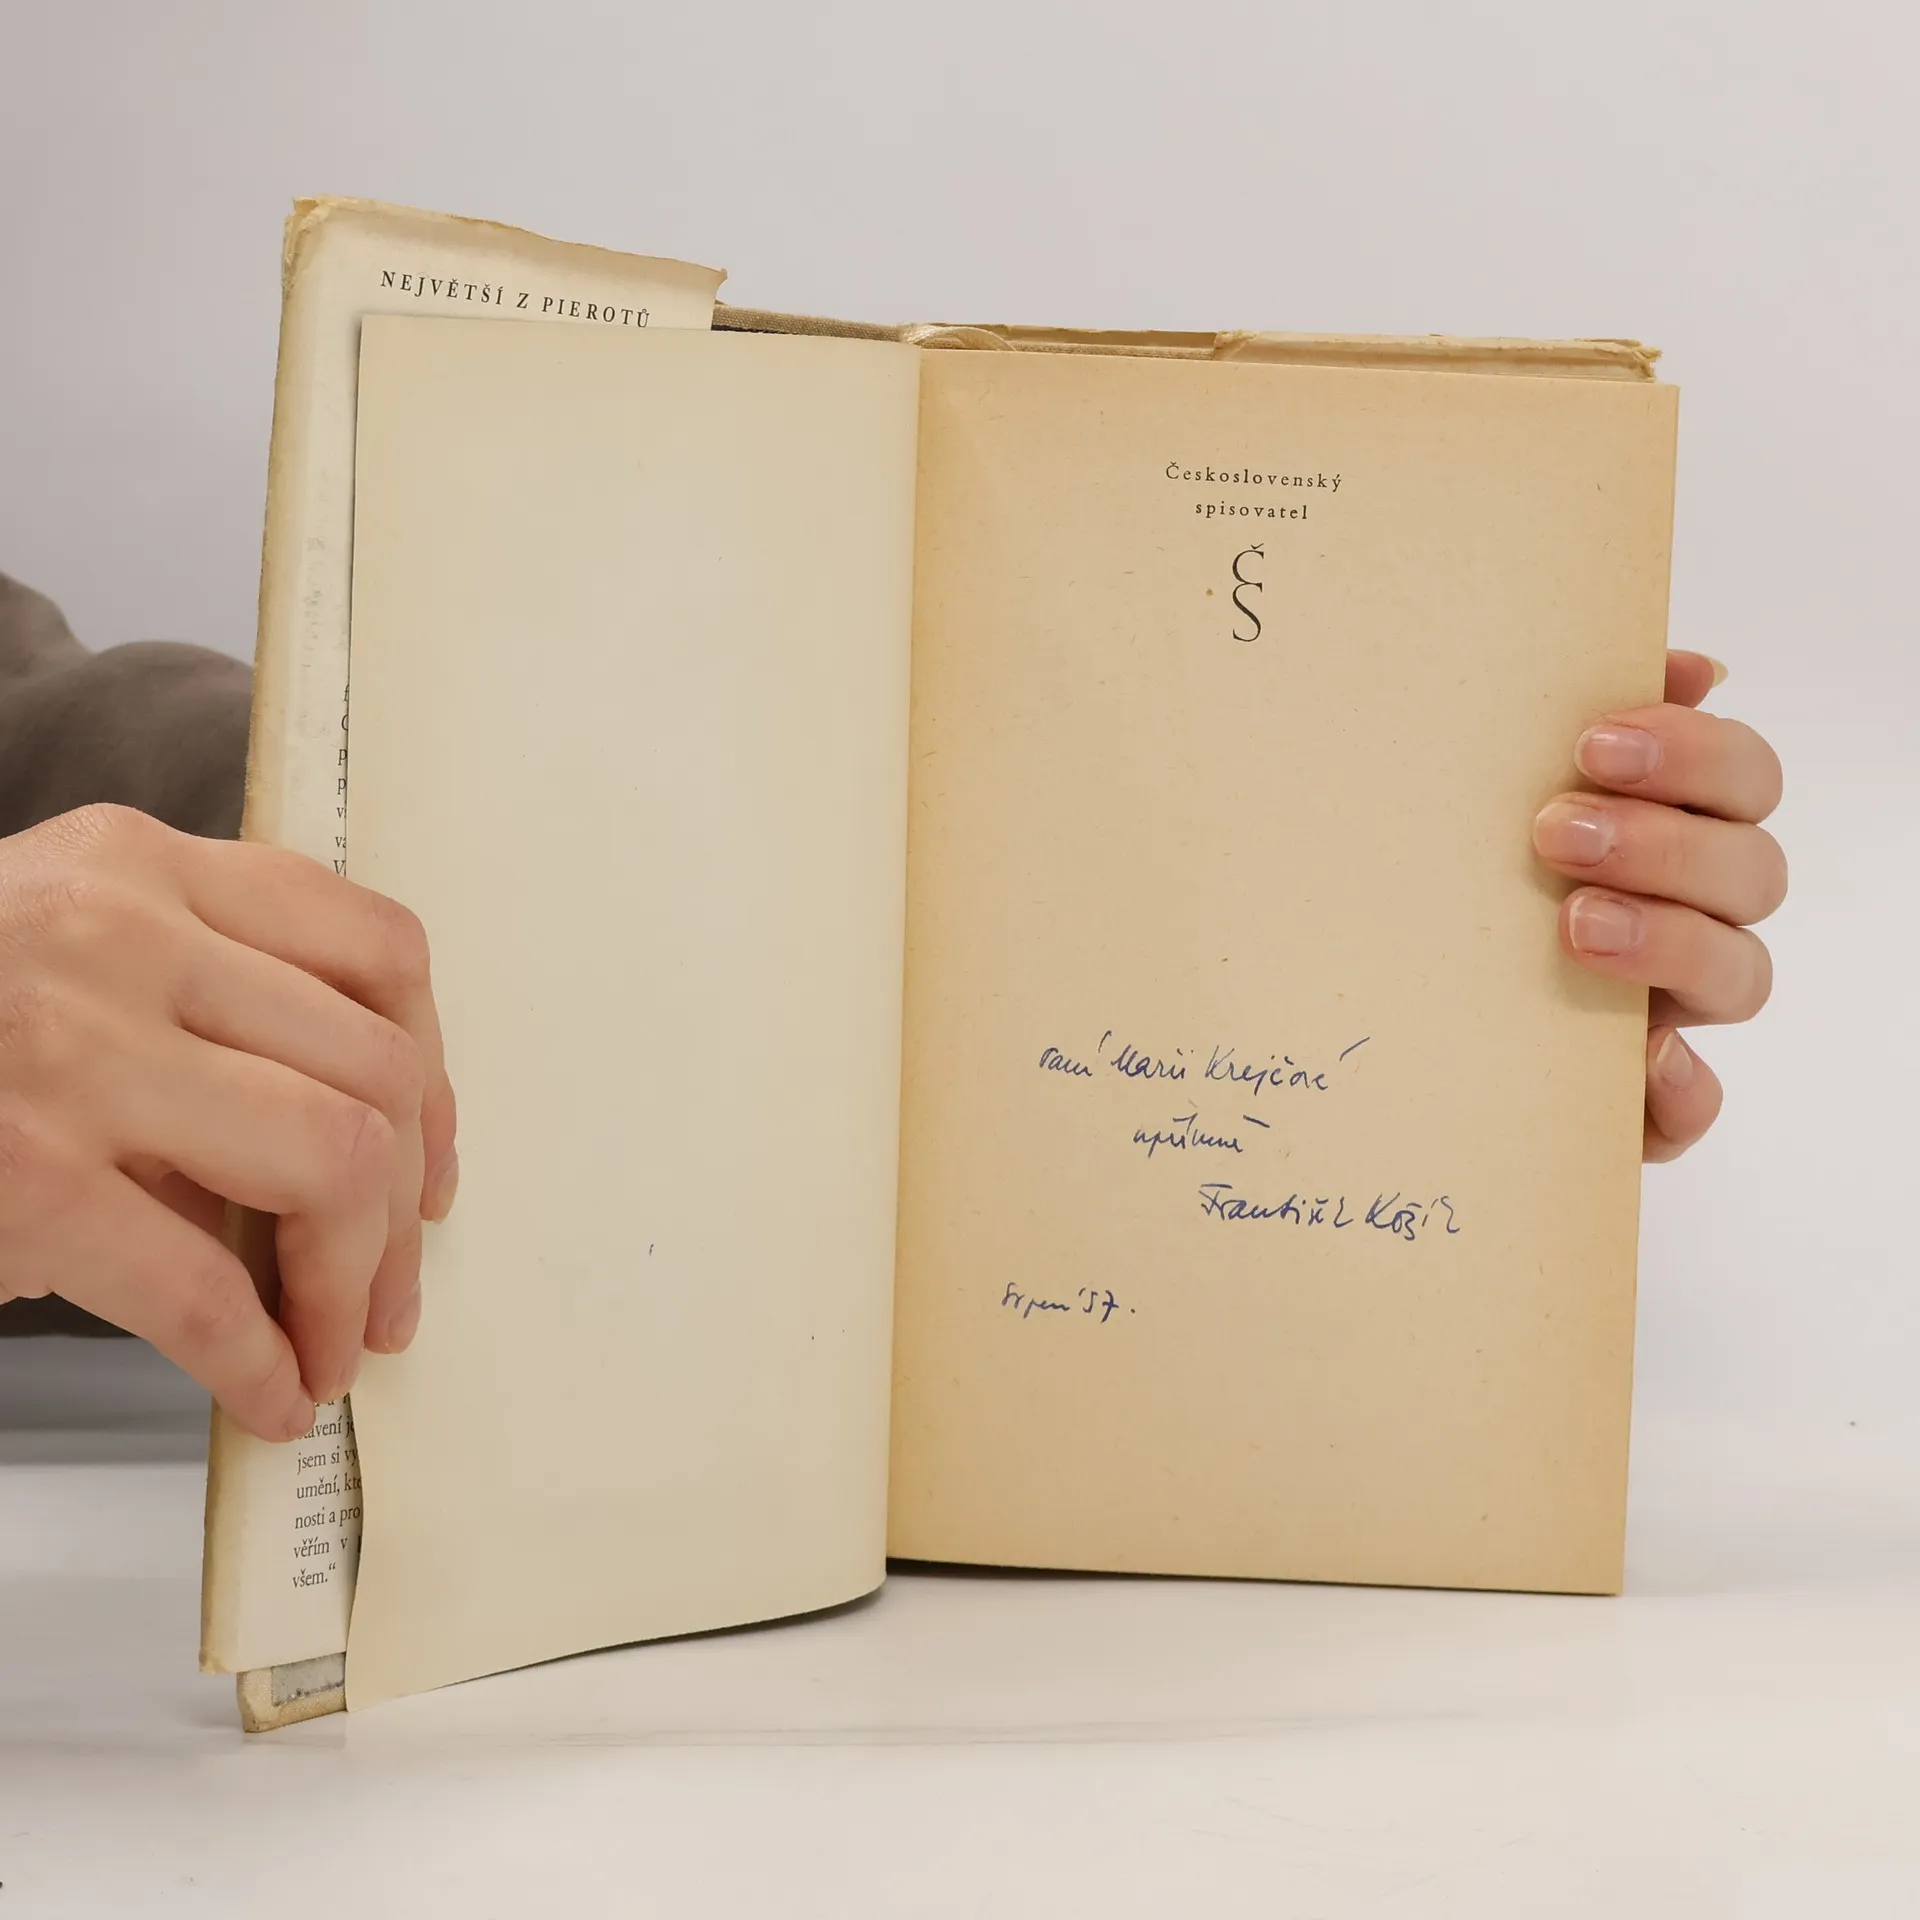 NEJVĚTŠÍ Z PIEROTŮ
f
p
p
v
va
V
stavení je
jsem si vy
umění, kte
nosti a pro
věřím v
všem.“
Československý
spisovatel
ČS
paní Marii Krejčové
upřímně
František Kožík
Srpen '57.